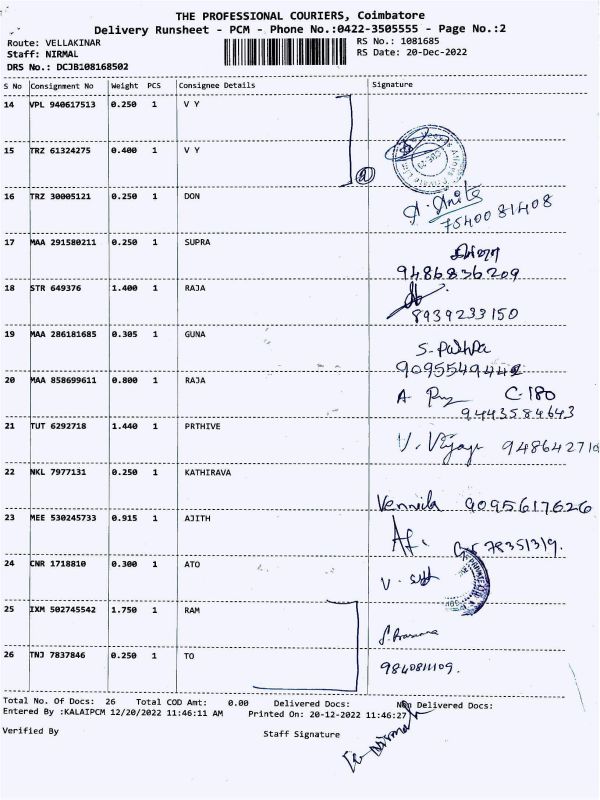 THE PROFESSIONAL COURIERS, Coimbatore
Delivery Runsheet - PCM - Phone No.:0422-3505555 - Page No.:2
Route: VELLAKINAR RS No.: 1081685
Staff: NIRMAL RS Date: 20-Dec-2022
DRS No.: DCJB108168502
S No Consignment No Weight PCS Consignee Details Signature
14 VPL 940617513 0.250 1 V Y
15 TRZ 61324275 0.400 1 V Y
2
16 TRZ 30005121 0.250 1 DON
7540081408
17 MAA 291580211 0.250 1 SUPRA
9486836209
18 STR 649376 1.400 1 RAJA
8939233150
19 MAA 286181685 0.305 1 GUNA
S. Pushpa
9095549442
20 MAA 858699611 0.800 1 RAJA
A C-180
9443584643
21 TUT 6292718 1.440 1 PRTHIVE
V. Vijaya 948642710
22 NKL 7977131 0.250 1 KATHIRAVA
Vennila 9095617626
23 MEE 530245733 0.915 1 AJITH
78351319.
24 CNR 1718810 0.300 1 ATO
25 IXM 502745542 1.750 1 RAM
26 TNJ 7837846 0.250 1 TO
9840811109.
Total No. Of Docs: 26 Total COD Amt: 0.00 Delivered Docs: Non Delivered Docs:
Entered By :KALAIPCM 12/20/2022 11:46:11 AM Printed On: 20-12-2022 11:46:27
Verified By Staff Signature
Nirmal